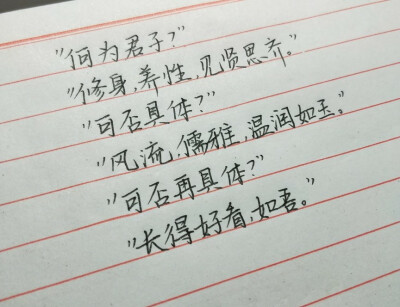 "何为君子?"
"修身,养性,见贤思齐。"
"可否具体?"
"风流,儒雅,温润如玉。"
"可否再具体?"
"长得好看,如吾。"